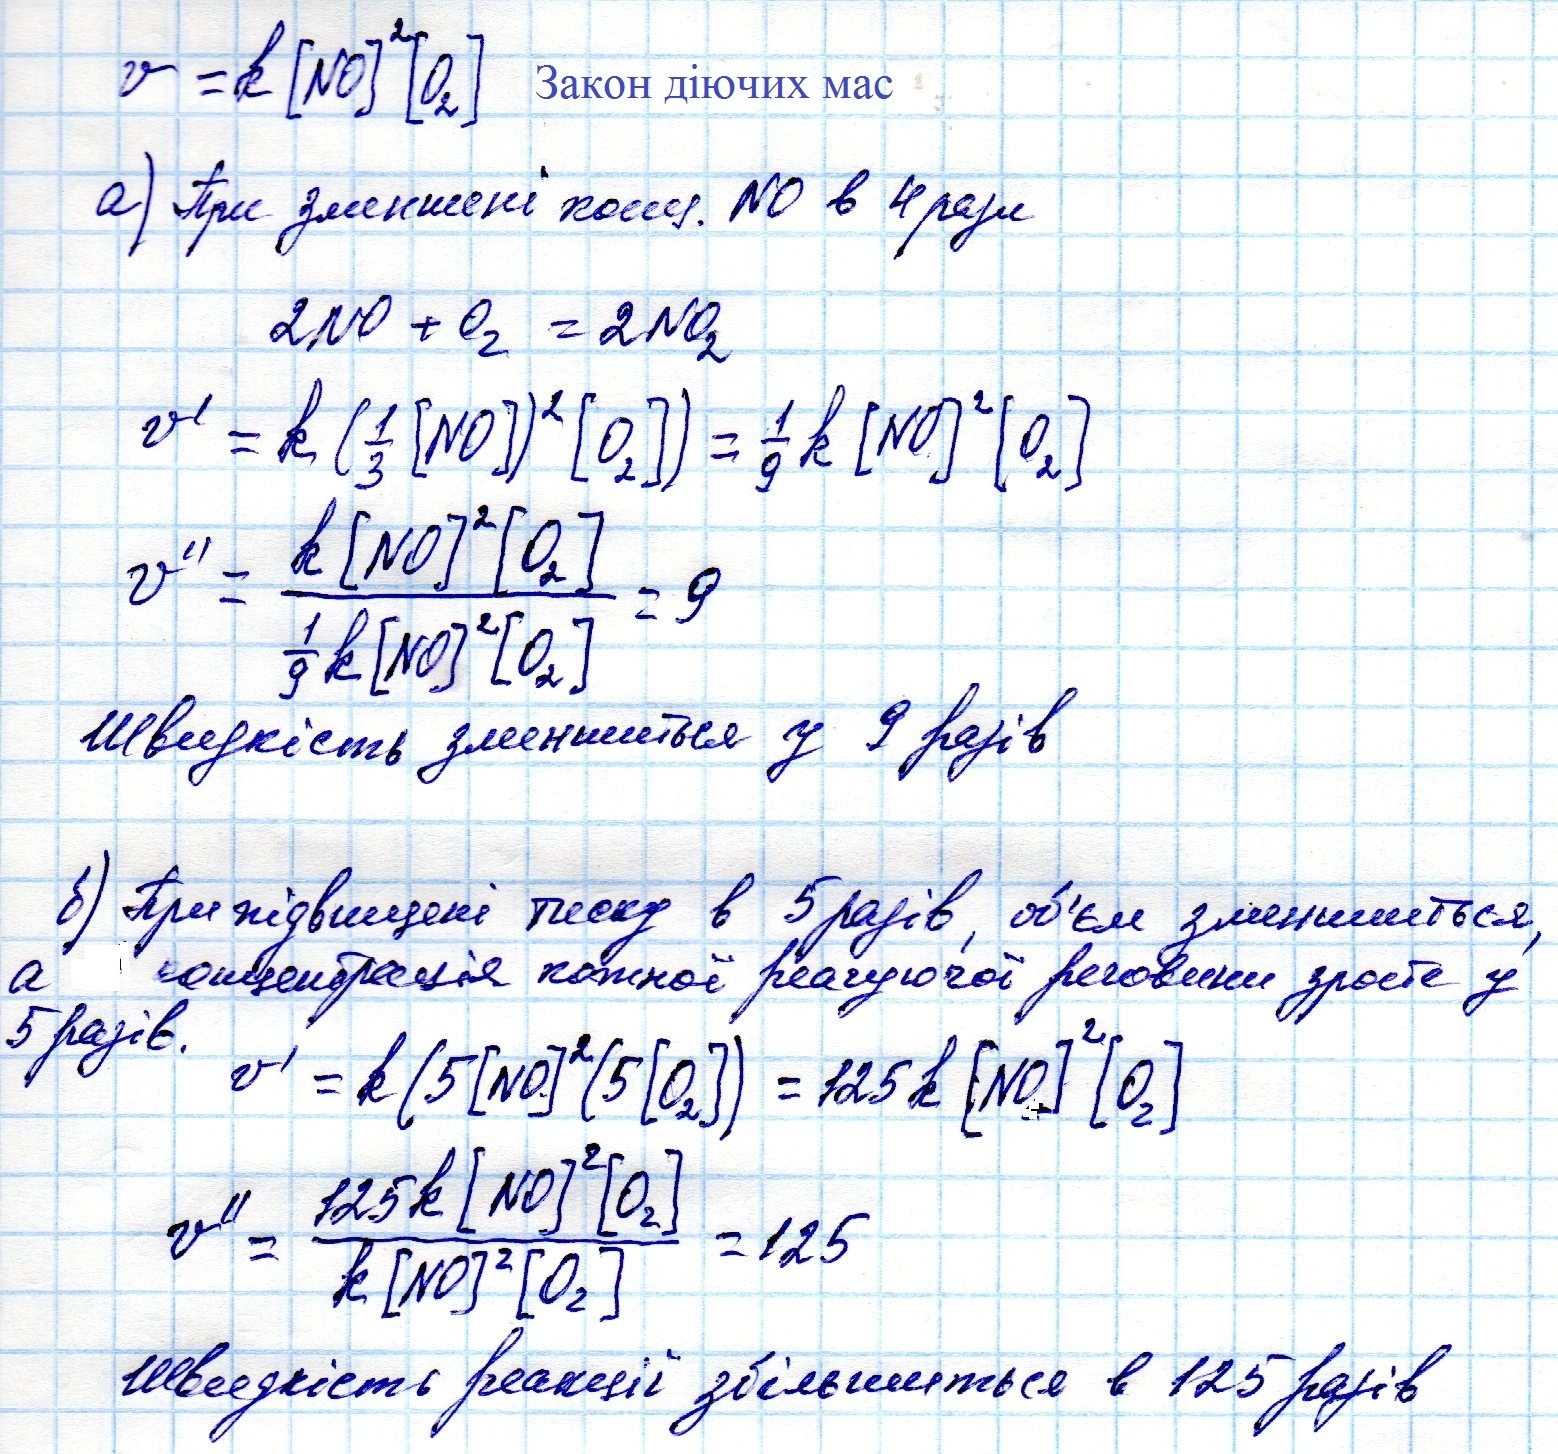 v = k [NO]² [O₂] Закон діючих мас
а) При зменшені конц. NO в 4 рази
2NO + O₂ = 2NO₂
v' = k (1/3 [NO])² [O₂]) = 1/9 k [NO]² [O₂]
v'' = k [NO]² [O₂] / 1/9 k [NO]² [O₂] = 9
Швидкість зменшиться у 9 разів
б) При підвищені тиску в 5 разів, об'єм зменшиться,
а концентрація кожної реагуючої речовини зросте у
5 разів.
v' = k (5 [NO]² (5 [O₂]) = 125 k [NO]² [O₂]
v'' = 125 k [NO]² [O₂] / k [NO]² [O₂] = 125
Швидкість реакції збільшиться в 125 разів